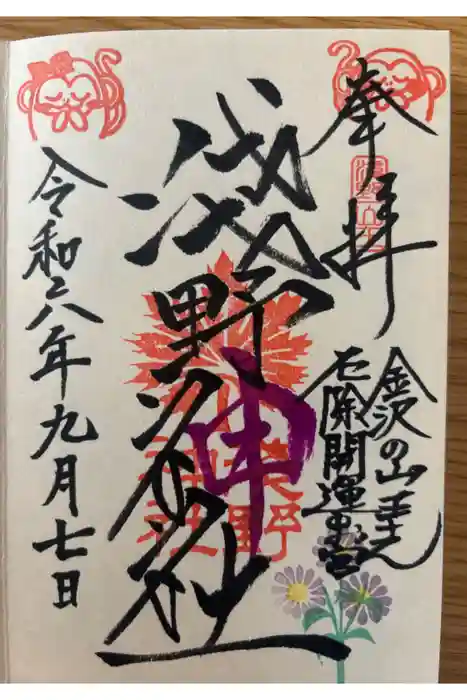 奉拝
金沢の山王
厄除開運お宮
淺野神社
申
令和六年九月七日